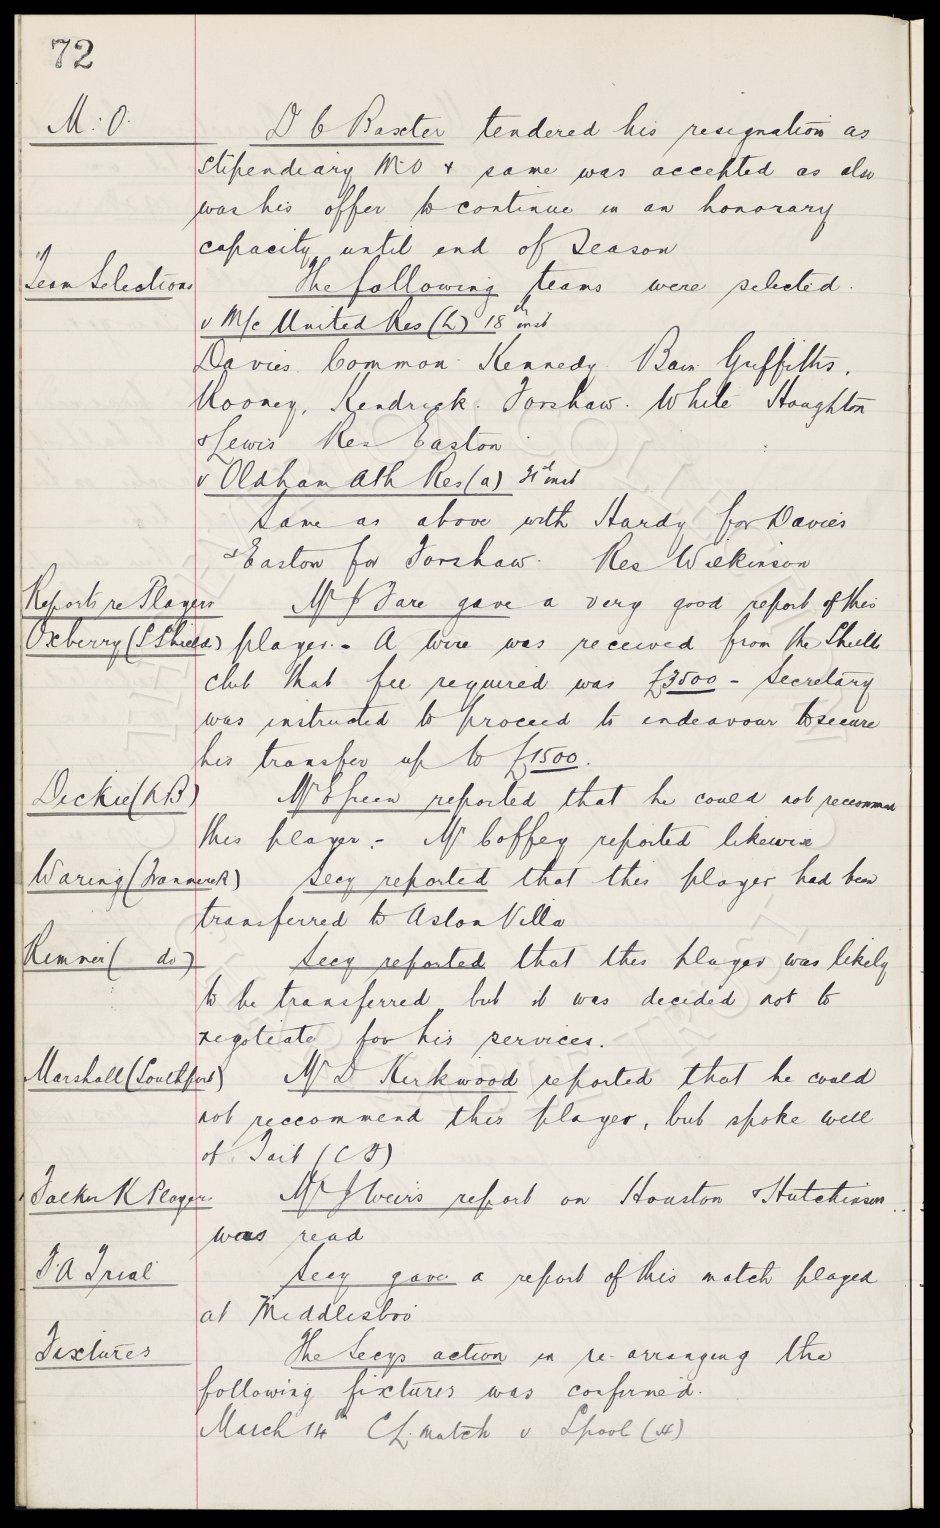 72
M.O. Dr C Baxter tendered his resignation as
stipendiary M.O & same was accepted as also
was his offer to continue in an honorary
capacity until end of Season
Team Selections The following teams were selected.
v M/c United Res (L) 18th inst
Davies. Common. Kennedy. Bain Griffiths,
Rooney, Kendrick. Forshaw. White Houghton
& Lewis Res Easton
v Oldham Ath Res (a) 21st inst
Same as above with Hardy for Davies
& Easton for Forshaw. Res Wilkinson
Reports re Players Mr J Fare gave a very good report of this
Oxberry (S Shields) player. - A wire was received from the Shields
club that fee required was £3500 - Secretary
was instructed to proceed to endeavour to secure
his transfer up to £1500.
Dickie (KB) Mr E Green reported that he could not reccommend
this player. - Mr Coffey reported likewise
Waring (Tranmere R) Secy reported that this player had been
transferred to Aston Villa
Rimmer ( do ) Secy reported that this player was likely
to be transferred, but it was decided not to
negotiate for his services.
Marshall (Southport) Mr D Kirkwood reported that he could
not reccommend this player, but spoke well
of Tait (CF)
Falkirk Player Mr J Weirs report on Houston & Hutchinson
was read
F.A Trial Secy gave a report of this match played
at Middlesbro
Fixtures The Secys action in re-arranging the
following fixtures was confirmed.
March 14th CL. match v Lpool (H)